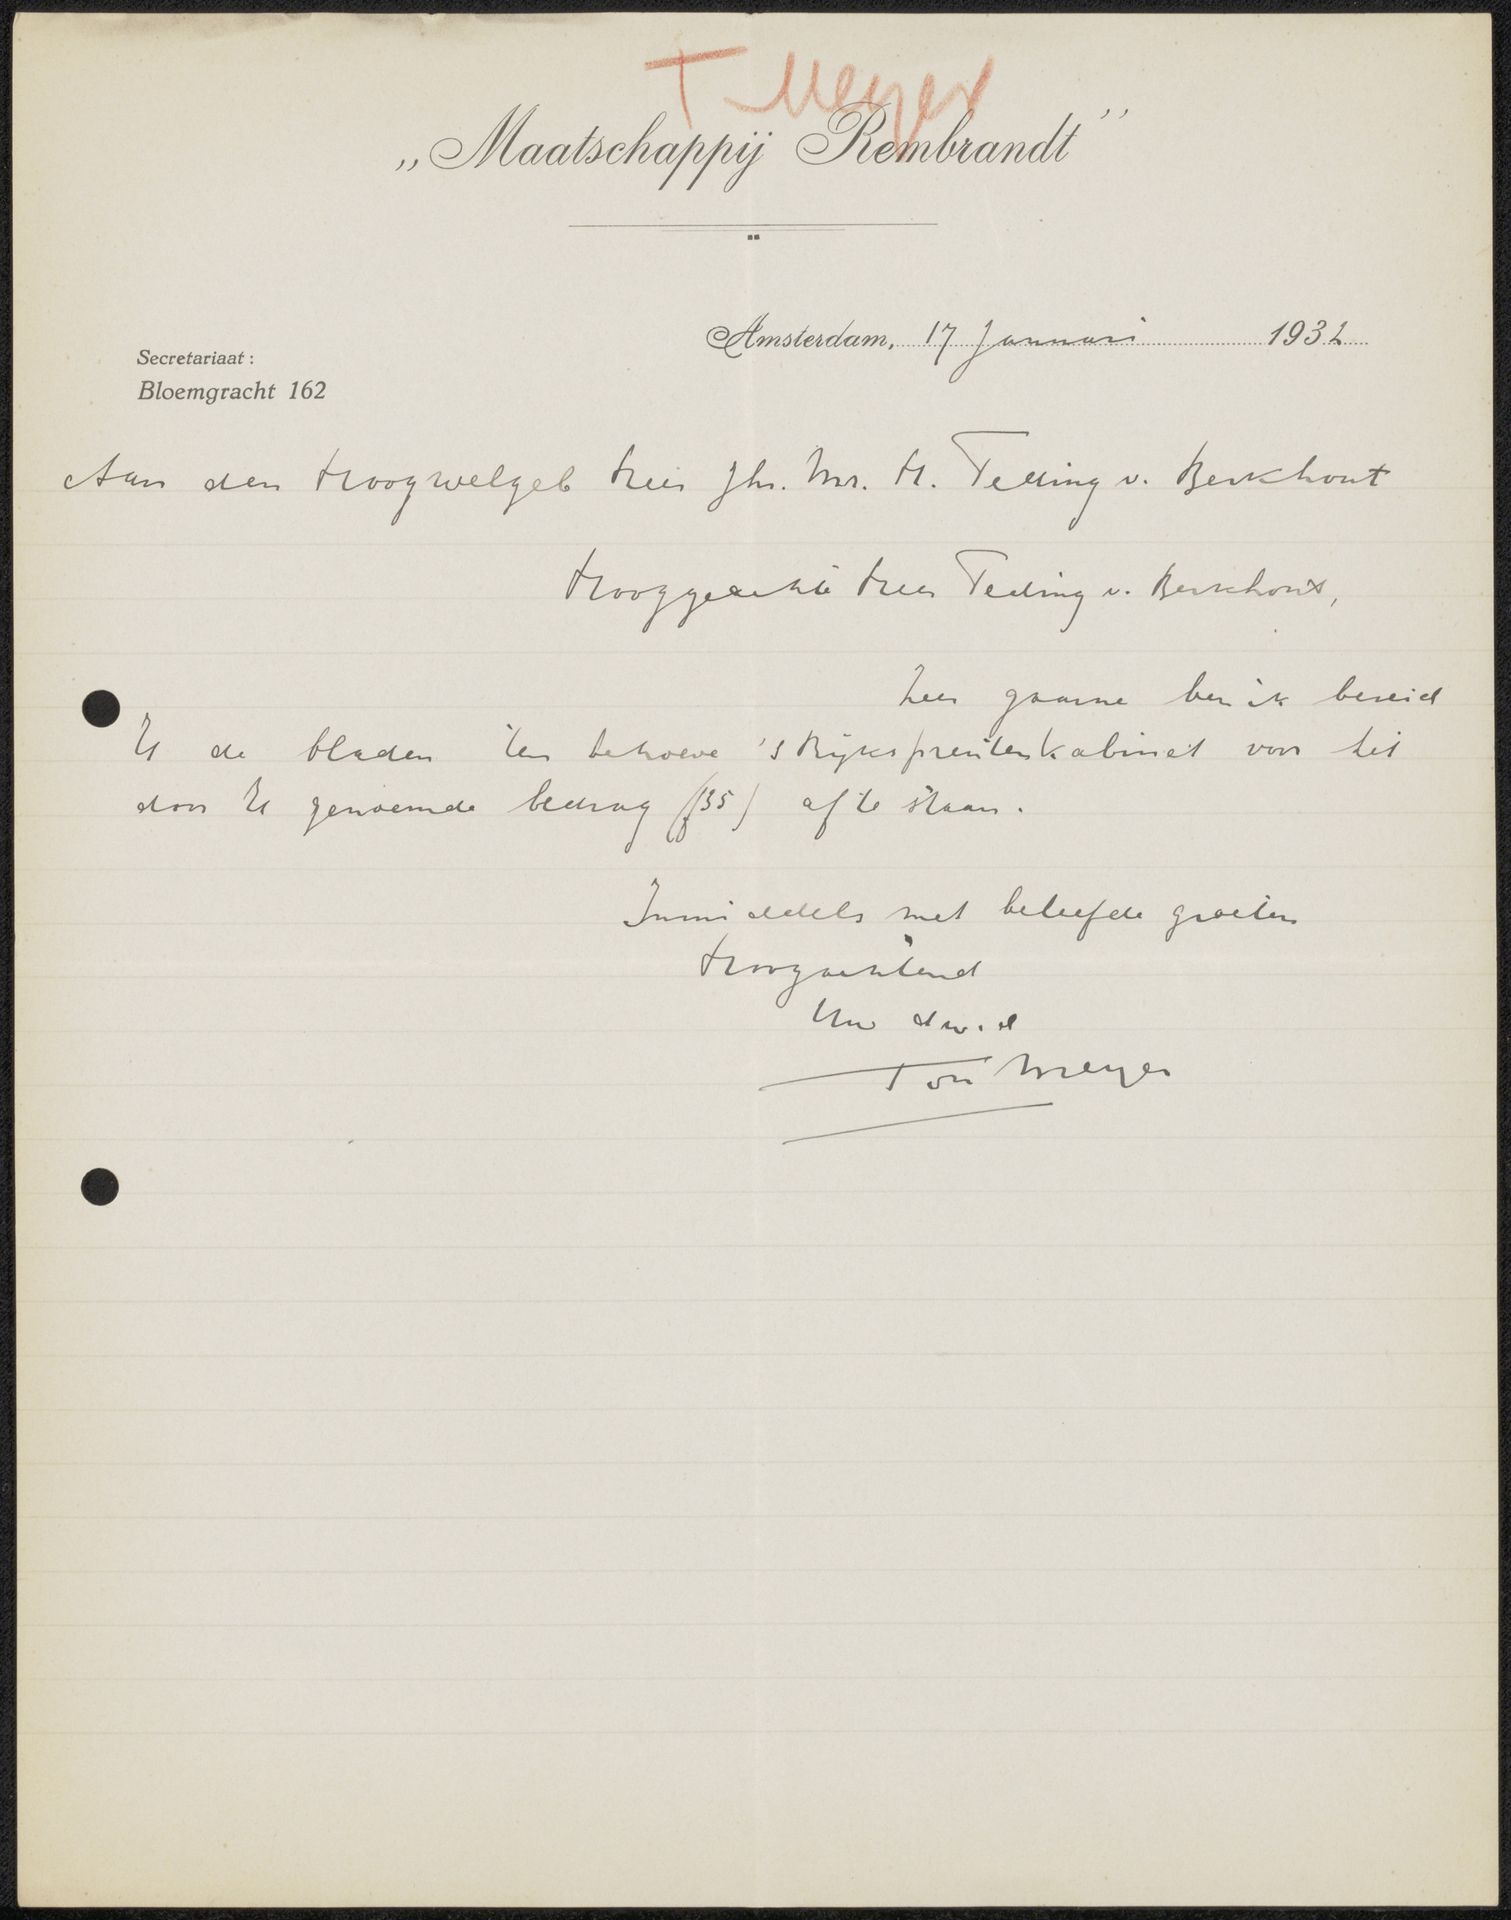 T Meyer
„Maatschappij Rembrandt”
Amsterdam, 17 Januari 1932
Secretariaat:
Bloemgracht 162
Aan den Hoogwelgeb Heer Jhr. Mr. H. Teding v. Berkhout
Hooggeachte Heer Teding v. Berkhout,
Zeer gaarne ben ik bereid
U de bladen ten behoeve 's Rijksprentenkabinet voor het
door U genoemde bedrag (ƒ35) af te staan.
Inmiddels met beleefde groeten
Hoogachtend
Uw dw. d
Ton Meyer